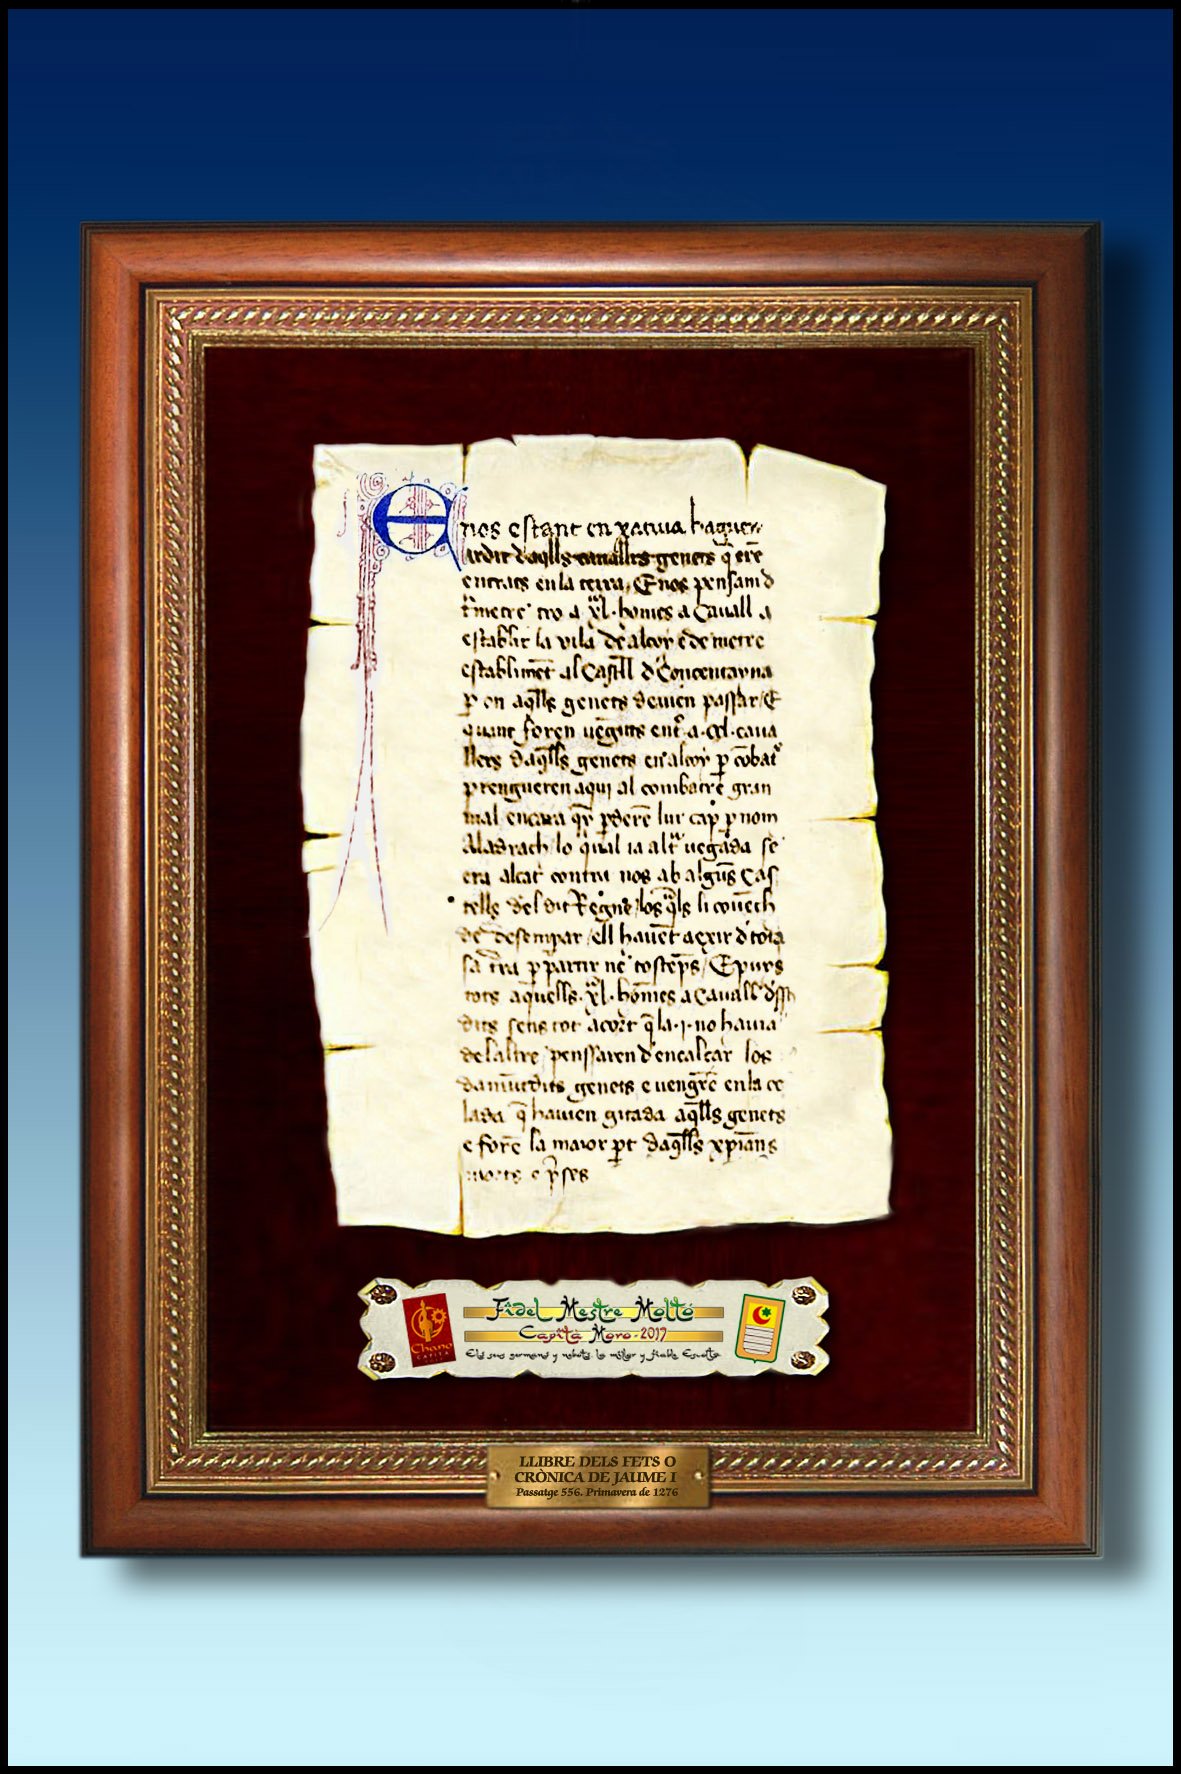 E nos estant en xatiua haguem
ardit daqlls cauallrs genets q̄ erē
entrats en la terra, E nos pensam d
t̃metre tro a .xl. homes a Cauall a
establir la vila de alcoy e de metre
establimēt al Castell d Concentayna
ꝑ on aqlls genets deuien passar, E
quant foren uēguts entr̃ .a. ccl. caua
llers daqlls genets en alcoy ꝑ cōbatr̃
prengueren aqui al combatre gran
mal encara q̃ ꝑderē lur cap ꝑ nom
Aladrach lo qual ia altr̃ uegada se
era alcat contra nos ab algūs Cas
tells del dit Regne, los q̃ls li couench
de desempar, ell hauēt a exir d tota
sa t̃ra ꝑ partir nē tostēps, E puys
tots aquells .xl. hōmes a Cauall
dits sens tot acort q̄ la .j. no hauia
del altre pensaren d encalçar los
damūtdits genets e uengrē en la ce
lada q̄ hauien gitada aqlls genets
e forē la maior ꝑt daqlls xp̄ians
morts e p̃ses
Fidel Mestre Moltó
Capità Moro - 2017
Els seus germans y nebots. la millor y fiable Esquadra
Chano
CAPITÀ
LLIBRE DELS FETS O
CRÒNICA DE JAUME I
Passatge 556. Primavera de 1276